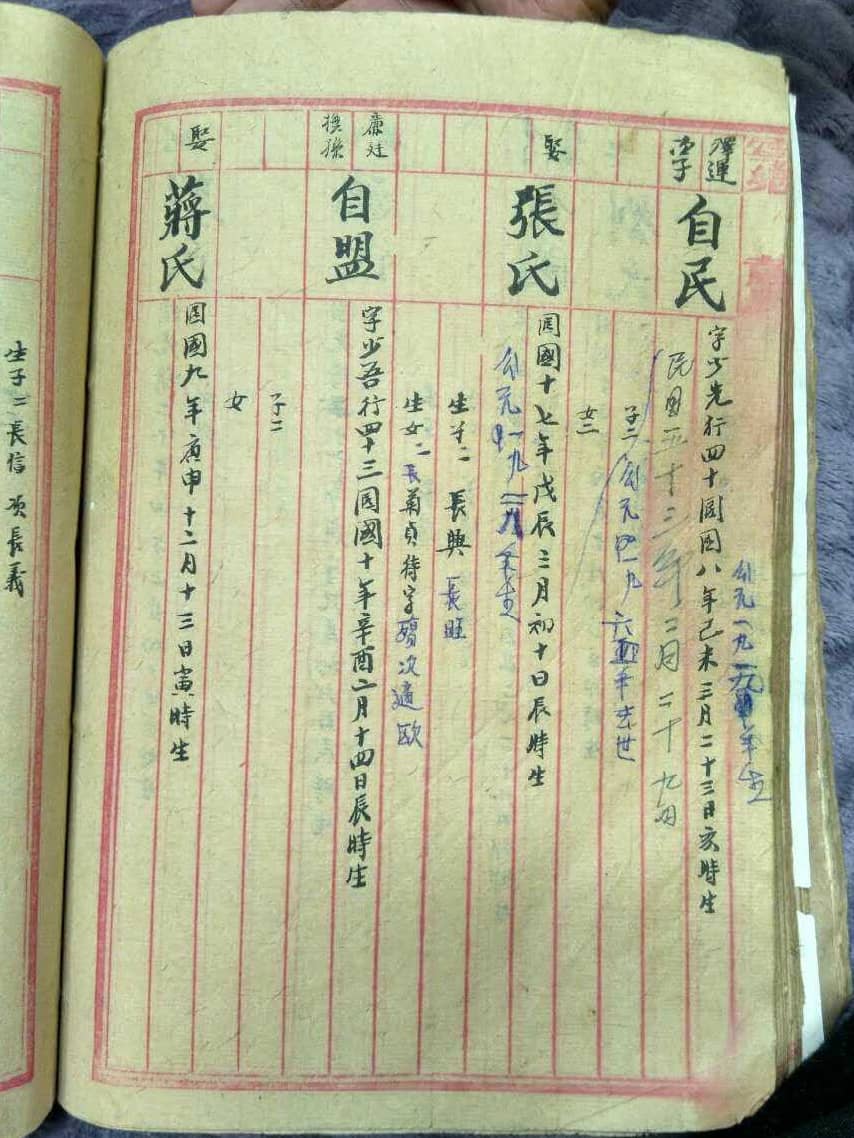 澤運
李子
自民
公元一九一九年生
字少先行四十國國八年己未三月二十三日亥時生
民國五十三年二月二十九日
子二
公元一九六五年去世
女二
娶
張氏
國國十七年戊辰三月初十日辰時生
公元一九二八年生
生子二 長興 長旺
生女二 長菊貞待字 殤 次適歐
康廷
撫孫
自盟
字少吾行四十三國國十年辛酉二月十四日辰時生
子二
女
娶
蔣氏
國國九年庚申十二月十三日寅時生
生子二長信 次長義